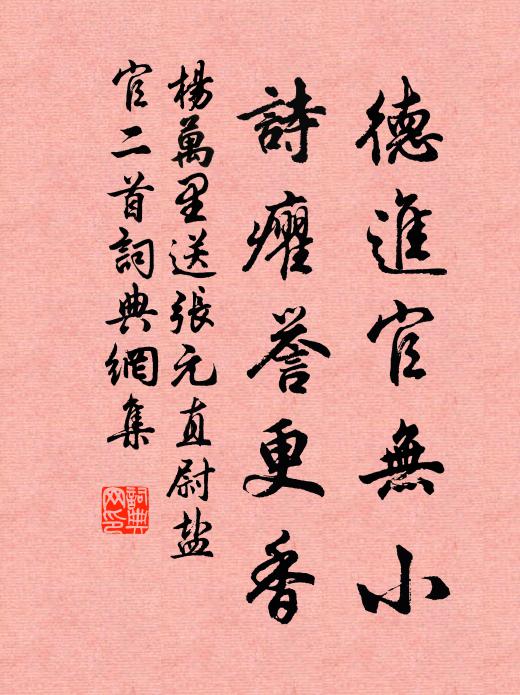 德進官無小
詩癯譽更香
楊萬里送張元直尉盐
官二首詞典網集
詞典
网印